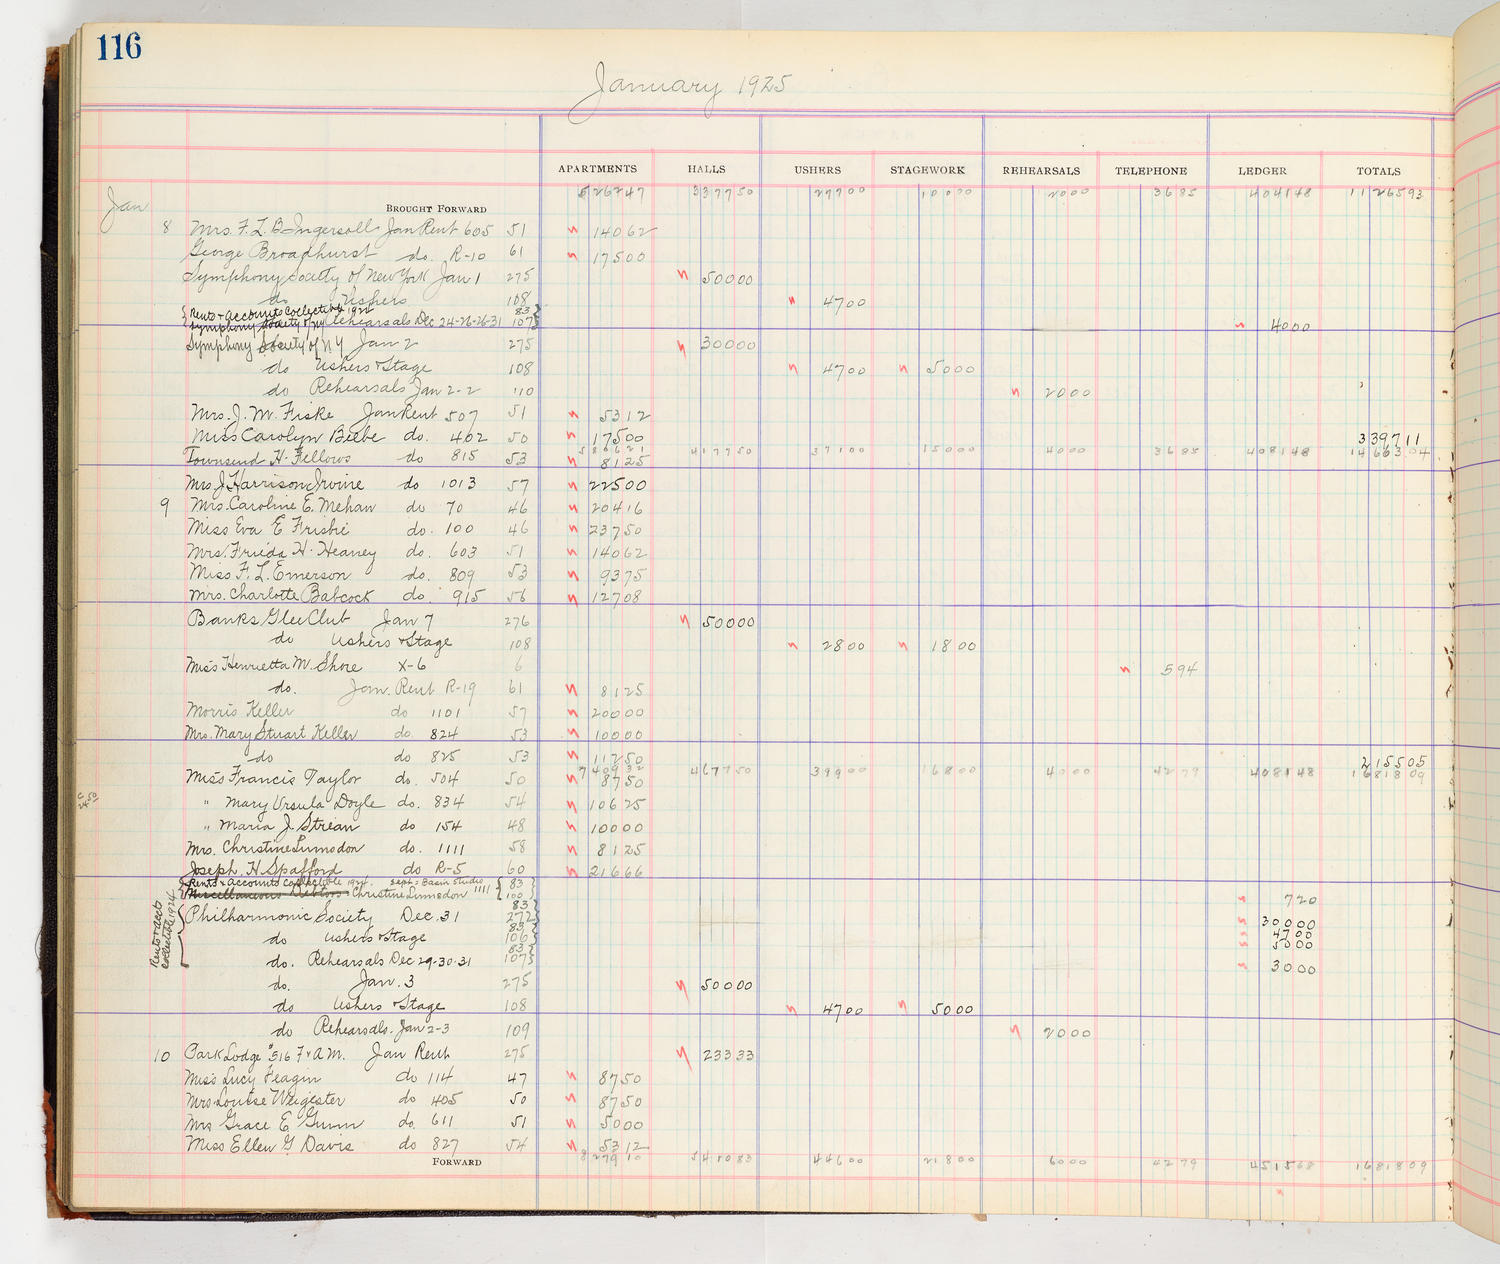 116
January 1925
APARTMENTS HALLS USHERS STAGEWORK REHEARSALS TELEPHONE LEDGER TOTALS
Jan BROUGHT FORWARD 526747 337750 27700 10000 2000 3685 404148 1126593
8 Mrs. F. L. B. Ingersoll Jan Rent 605 51 14062
George Broadhurst do. R-10 61 17500
Symphony Society of New York Jan 1 275 50000
do Ushers 108 4700
Rents & Accounts Collectible 1924 83
Symphony Society of NY Rehearsals Dec 24-26-26-31 107 4000
Symphony Society of N Y Jan 2 275 30000
do Ushers & Stage 108 4700 5000
do Rehearsals Jan 2-2 110 2000
Mrs. J. M. Fiske Jan Rent 507 51 5312
Miss Carolyn Beebe do. 402 50 17500 339711
586621 417750 37100 15000 4000 3685 408148 1466304
Townsend H. Fellows do 815 53 8125
Mrs J. Harrison Irvine do 1013 57 22500
9 Mrs. Caroline E. Mehan do 70 46 20416
Miss Eva E Frisbie do. 100 46 23750
Mrs. Frieda H. Heaney do. 603 51 14062
Miss F. L. Emerson do. 809 53 9375
Mrs. Charlotte Babcock do. 915 56 12708
Banks Glee Club Jan 7 276 50000
do Ushers & Stage 108 2800 1800
Miss Henrietta M. Shore X-6 6 594
do. Jan. Rent R-19 61 8125
Morris Keller do 1101 57 20000
Mrs. Mary Stuart Keller do. 824 53 10000
do do 825 53 11250 215505
740932 467750 39900 16800 4000 4279 408148 1681809
Miss Francis Taylor do. 504 50 8750
" Mary Ursula Doyle do. 834 54 10625
" Maria J. Strean do 154 48 10000
Mrs. Christine Lumsdon do. 1111 58 8125
Joseph H Spafford do R-5 60 21666
Rents & Accounts Collectible 1924. Basin Studio 83
Miscellaneous Debtors Christine Lumsdon 1111 100 720
Rents & Accts Collectible 1924
83
Philharmonic Society Dec. 31 272 30000
83
do Ushers & Stage 106 4700
5000
83
do. Rehearsals Dec 29-30-31 107 3000
do. Jan. 3 275 50000
do Ushers & Stage 108 4700 5000
do Rehearsals. Jan 2-3 109 2000
10 Park Lodge #516 F & A M. Jan Rent 275 23333
Miss Lucy Feagin do 114 47 8750
Mrs Louise Weigester do 405 50 8750
Mrs Grace E Gunn do. 611 51 5000
Miss Ellen G. Davis do 827 54 5312
FORWARD 827910 541083 44600 21800 6000 4279 451568 1681809